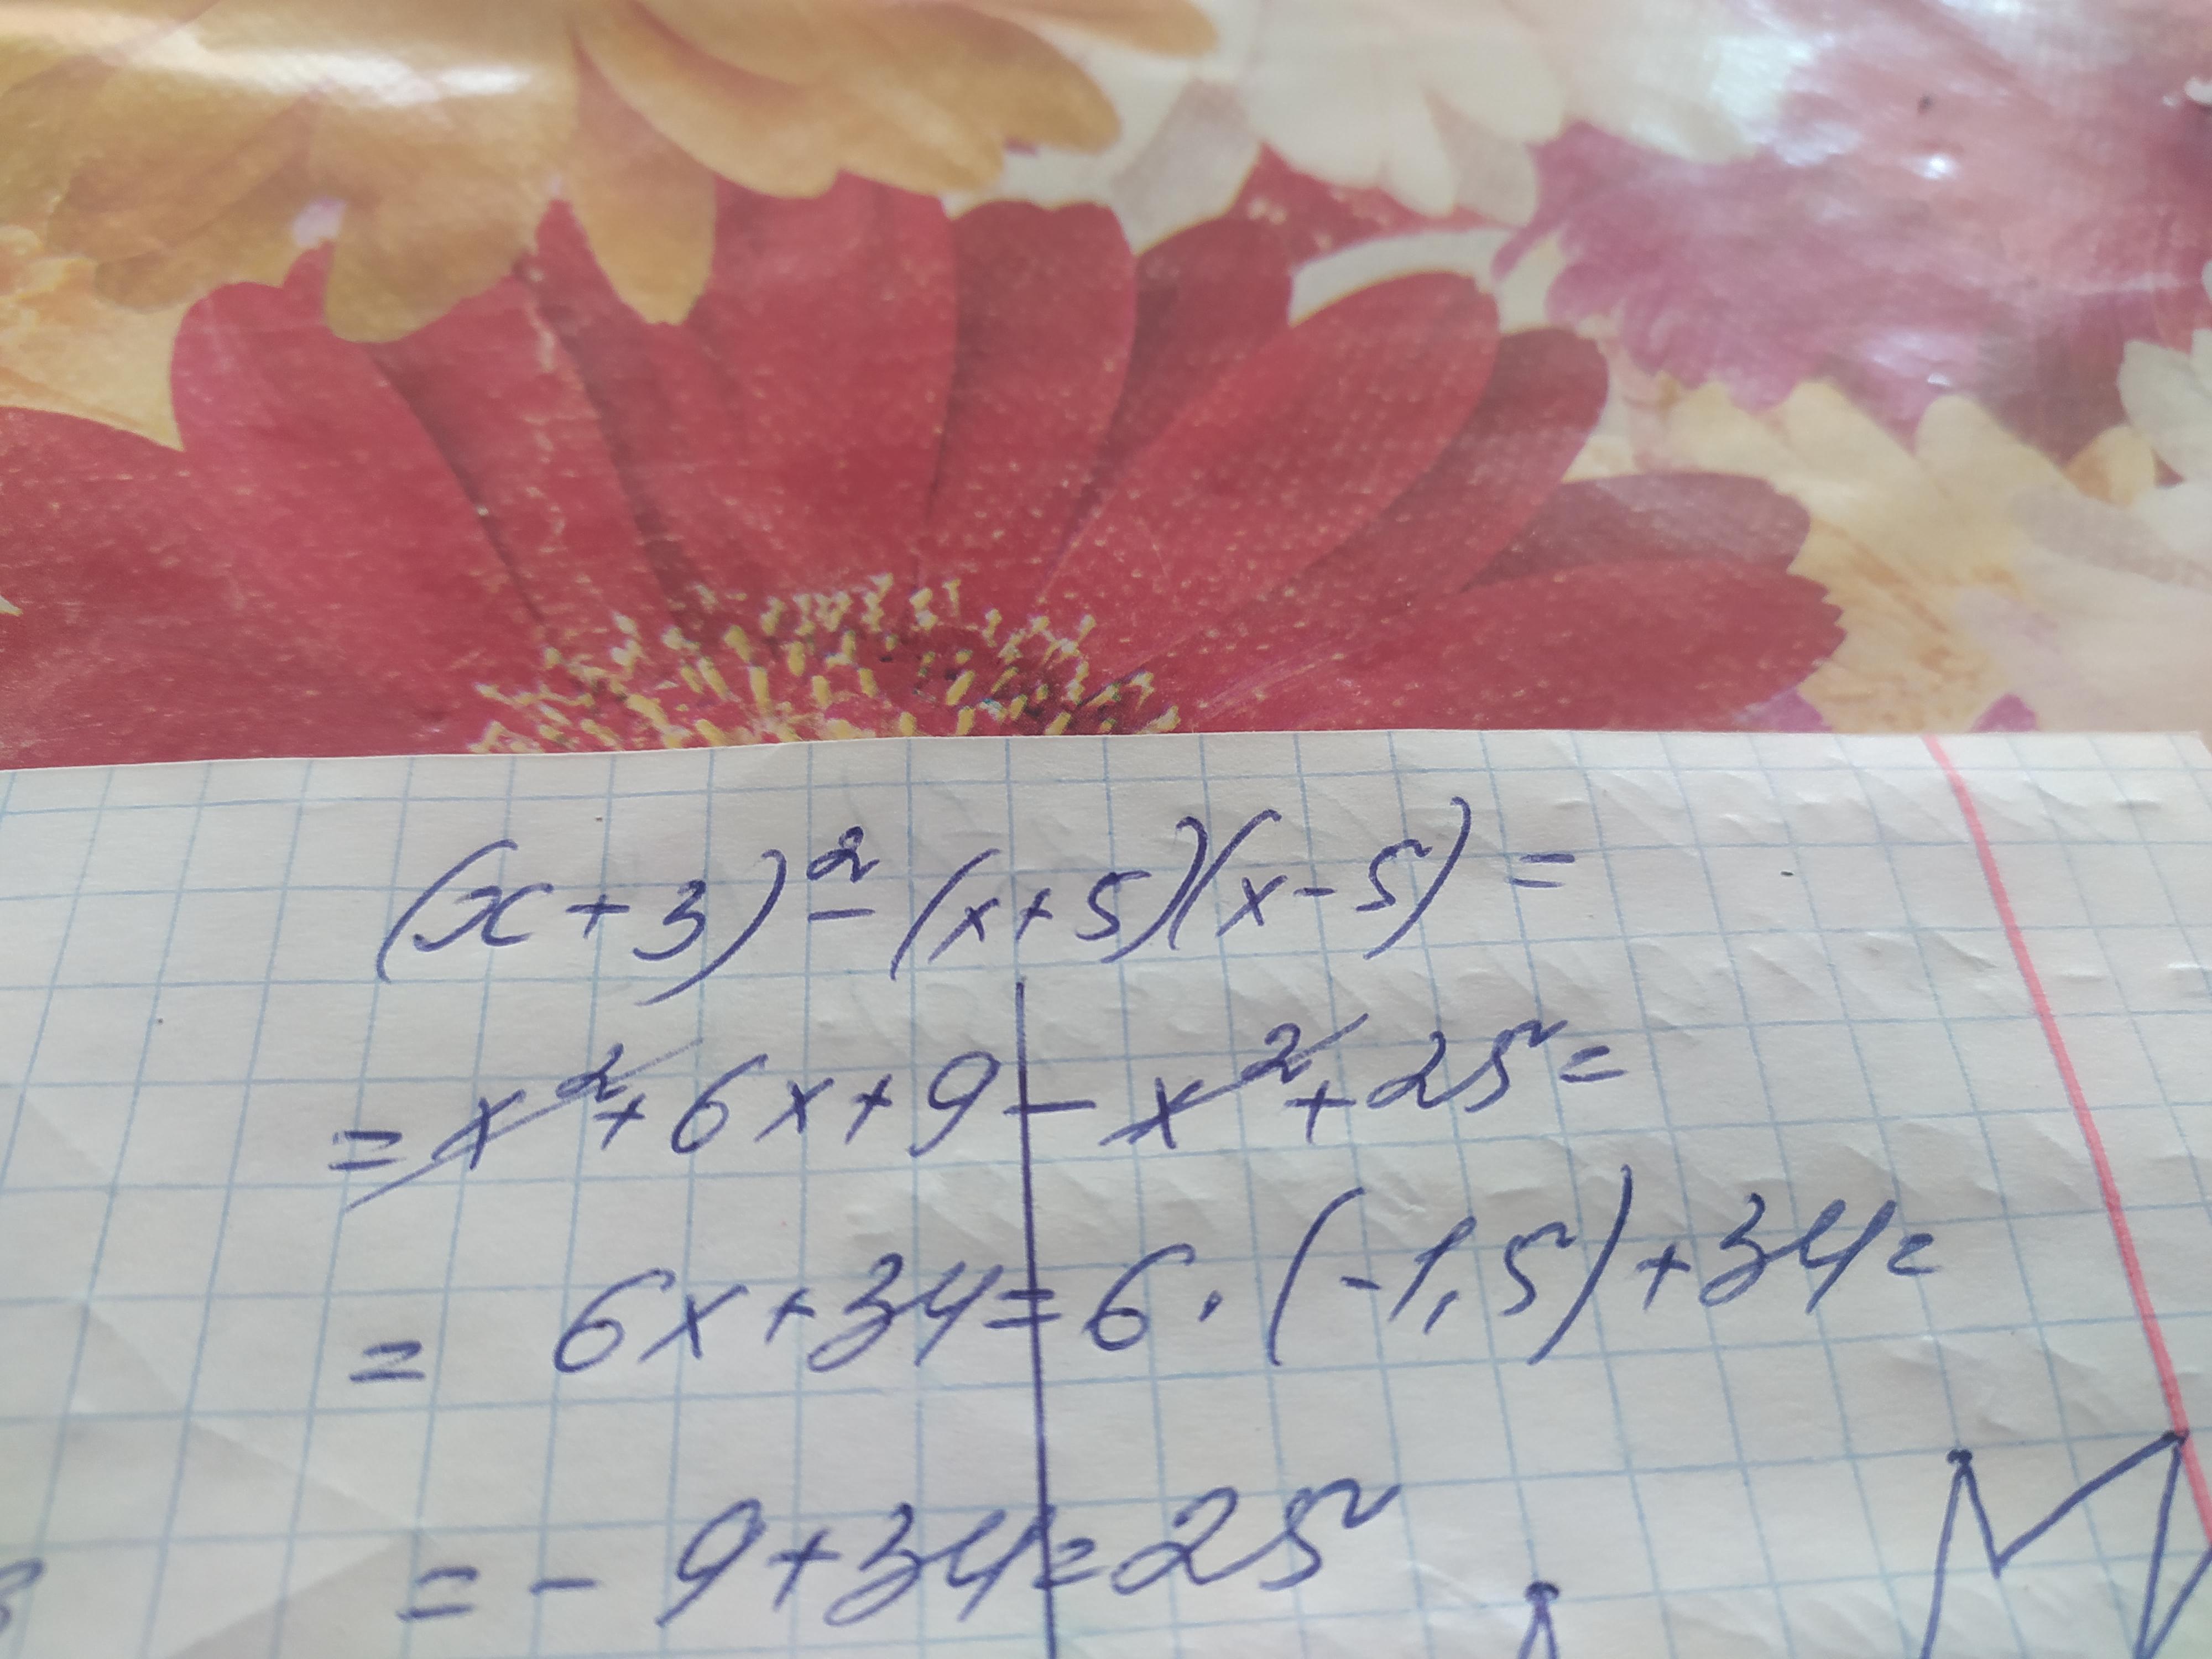 (x+3)²-(x+5)(x-5)=
=x²+6x+9-x²+25=
=6x+34=6·(-1,5)+34=
=-9+34=25